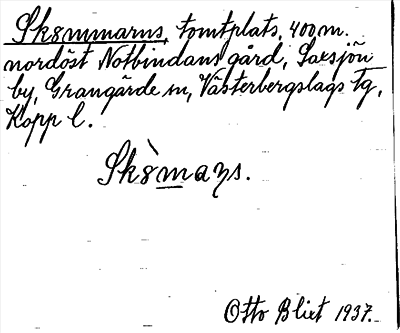 Sk8mmarns, tomtplats, 400 m.
nordöst Notbindars gård, Saxsjön
by, Grangärde sn, Västerbergslags tg,
Kopp l.
Sk8̀mays.
Otto Blixt 1937.